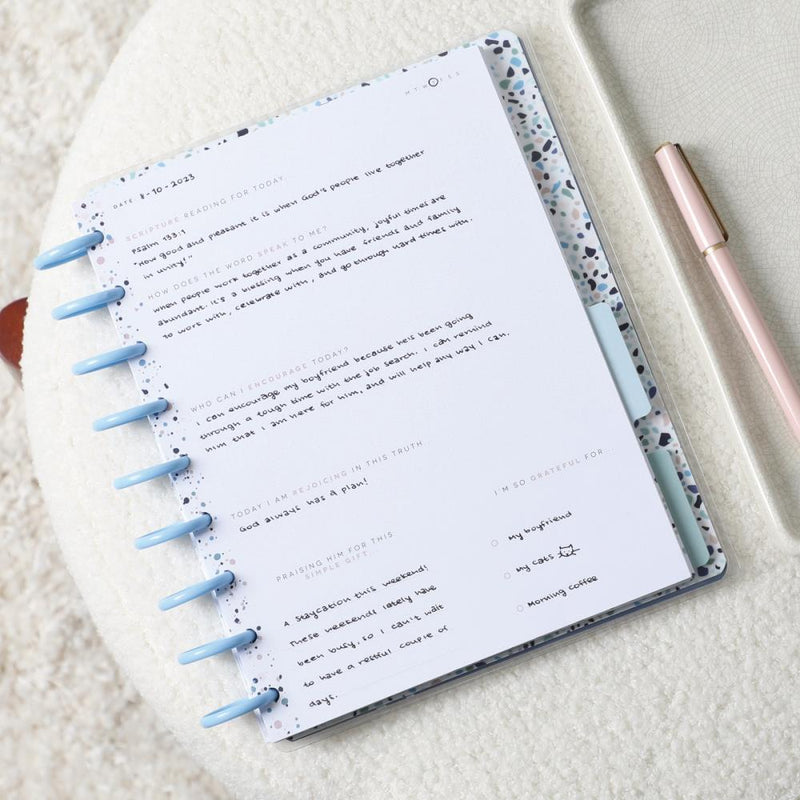 M T W O F S
DATE 8-10-2023
SCRIPTURE READING FOR TODAY...
Psalm 133:1
"How good and pleasant it is when God's people live together
in unity!"
HOW DOES THE WORD SPEAK TO ME?
When people work together as a community, joyful times are
abundant. It's a blessing when you have friends and family
to work with, celebrate with, and go through hard times with.
WHO CAN I ENCOURAGE TODAY?
I can encourage my boyfriend because he's been going
through a tough time with the job search. I can remind
him that I am here for him, and will help any way I can.
TODAY I AM REJOICING IN THIS TRUTH...
God always has a plan!
PRAISING HIM FOR THIS
SIMPLE GIFT...
A staycation this weekend!
These weekends lately have
been busy, so I can't wait
to have a restful couple of
days.
I'M SO GRATEFUL FOR...
My boyfriend
My cats
Morning coffee